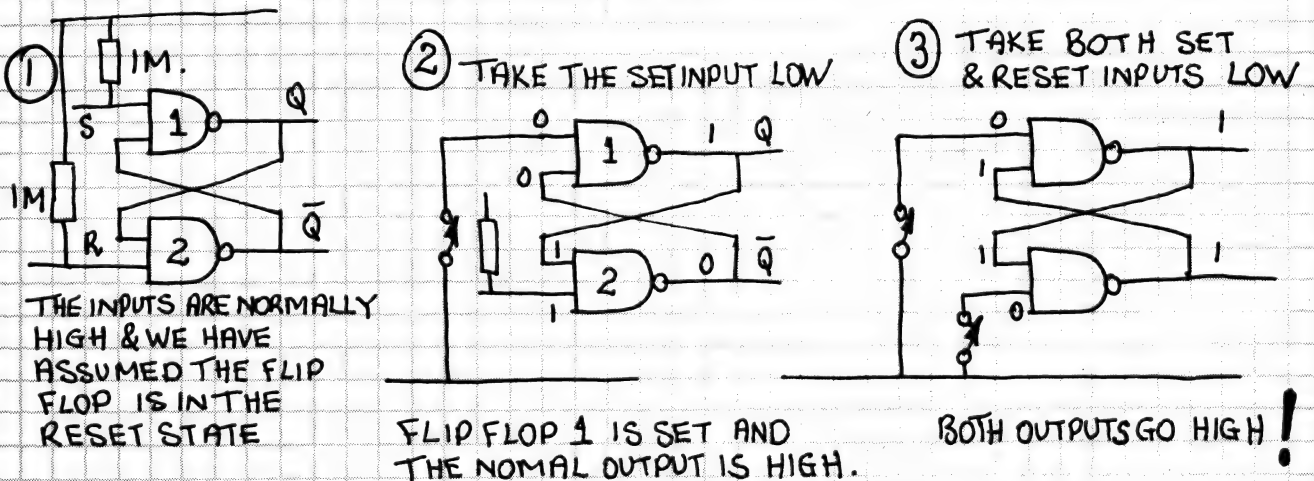 ①
1M.
S
1
Q
1M
R
2
Q̅
THE INPUTS ARE NORMALLY
HIGH & WE HAVE
ASSUMED THE FLIP
FLOP IS IN THE
RESET STATE
② TAKE THE SET INPUT LOW
0
1
1 Q
0
1
2
0 Q̅
1
FLIP FLOP 1 IS SET AND
THE NOMAL OUTPUT IS HIGH.
③ TAKE BOTH SET
& RESET INPUTS LOW
0
1
1
1
1
0
BOTH OUTPUTS GO HIGH !